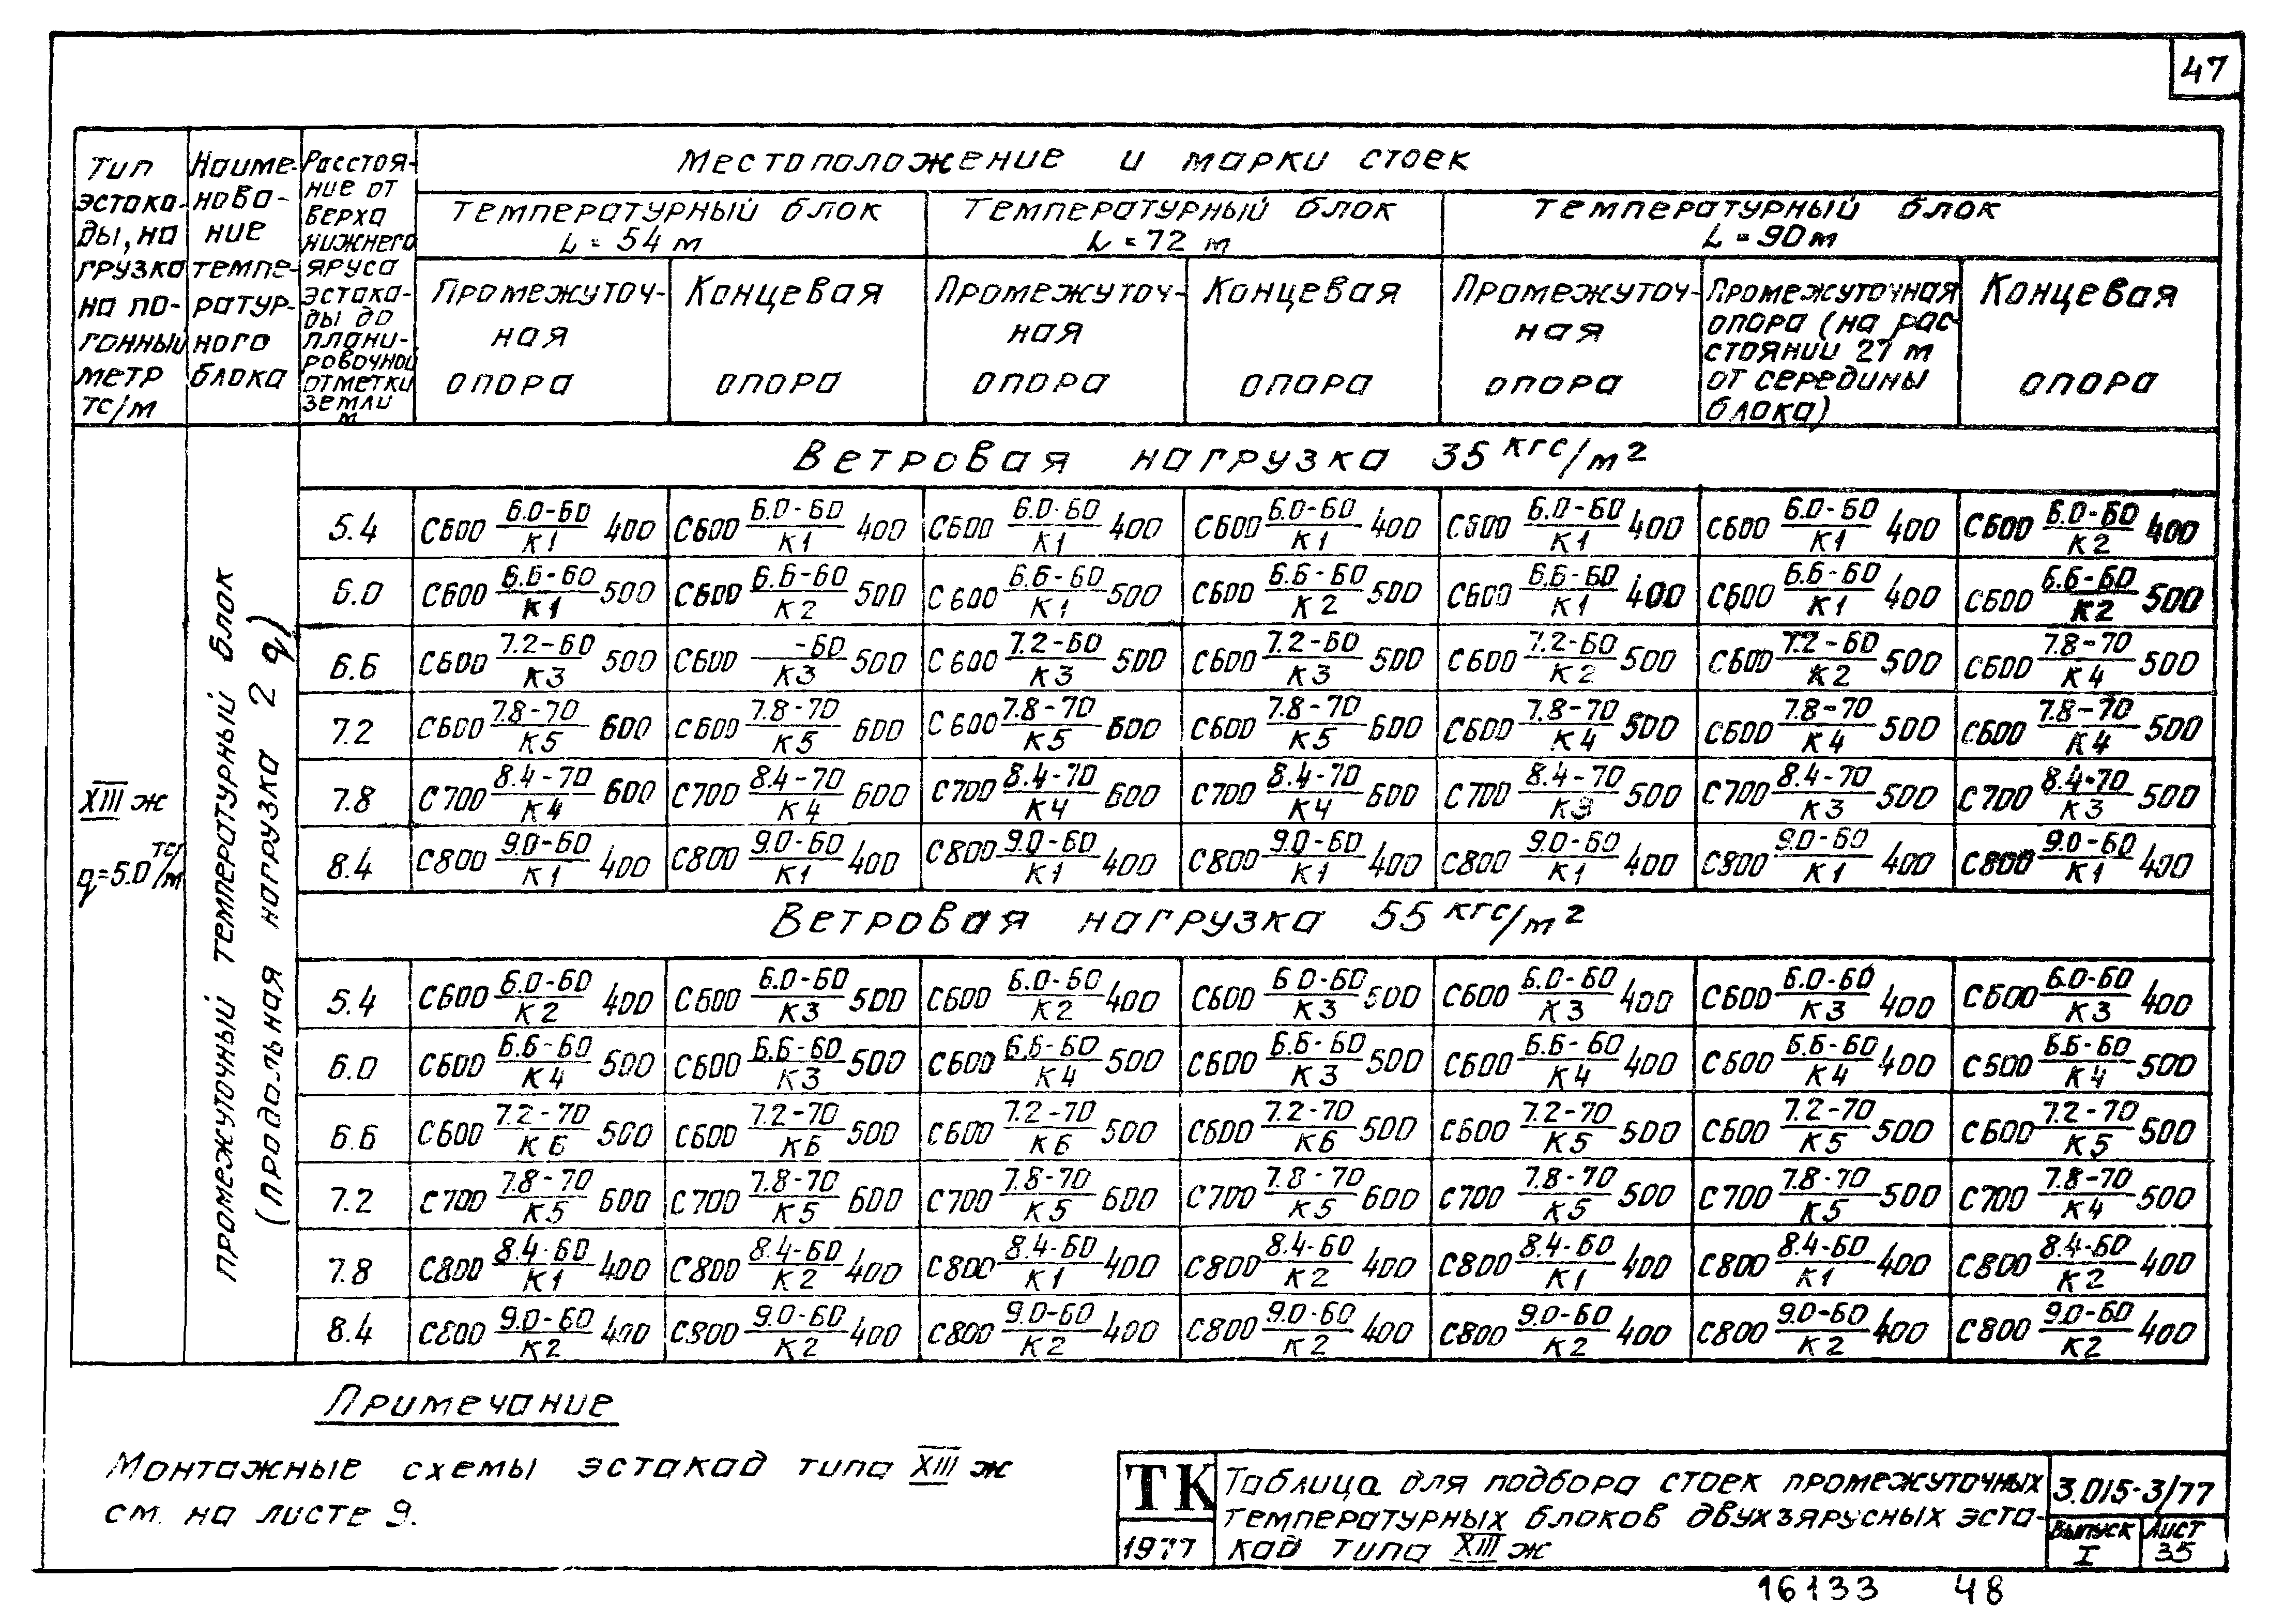 47
Тип эстакады, нагрузка на погонный метр тс/м
Наименование температурного блока
Расстояние от верха нижнего яруса эстакады до планировочной отметки земли м
Местоположение и марки стоек
Температурный блок L = 54 м
Температурный блок L = 72 м
Температурный блок L = 90 м
Промежуточная опора
Концевая опора
Промежуточная опора
Концевая опора
Промежуточная опора
Промежуточная опора (на расстоянии 27 м от середины блока)
Концевая опора
XIII ж
q = 5.0 тс/м
Промежуточный температурный блок
(продольная нагрузка 2 q)
Ветровая нагрузка 35 кгс/м²
5.4 С600 6.0-60/К1 400 С600 6.0-60/К1 400 С600 6.0-60/К1 400 С600 6.0-60/К1 400 С600 6.0-60/К1 400 С600 6.0-60/К1 400 С600 6.0-60/К2 400
6.0 С600 6.6-60/К1 500 С600 6.6-60/К2 500 С600 6.6-60/К1 500 С600 6.6-60/К2 500 С600 6.6-60/К1 400 С600 6.6-60/К1 400 С600 6.6-60/К2 500
6.6 С600 7.2-60/К3 500 С600 -60/К3 500 С600 7.2-60/К3 500 С600 7.2-60/К3 500 С600 7.2-60/К2 500 С600 7.2-60/К2 500 С600 7.8-70/К4 500
7.2 С600 7.8-70/К5 600 С600 7.8-70/К5 600 С600 7.8-70/К5 600 С600 7.8-70/К5 600 С600 7.8-70/К4 500 С600 7.8-70/К4 500 С600 7.8-70/К4 500
7.8 С700 8.4-70/К4 600 С700 8.4-70/К4 600 С700 8.4-70/К4 600 С700 8.4-70/К4 600 С700 8.4-70/К3 500 С700 8.4-70/К3 500 С700 8.4-70/К3 500
8.4 С800 9.0-60/К1 400 С800 9.0-60/К1 400 С800 9.0-60/К1 400 С800 9.0-60/К1 400 С800 9.0-60/К1 400 С800 9.0-60/К1 400 С800 9.0-60/К1 400
Ветровая нагрузка 55 кгс/м²
5.4 С600 6.0-60/К2 400 С600 6.0-60/К3 500 С600 6.0-60/К2 400 С600 6.0-60/К3 500 С600 6.0-60/К3 400 С600 6.0-60/К3 400 С600 6.0-60/К3 400
6.0 С600 6.6-60/К4 500 С600 6.6-60/К3 500 С600 6.6-60/К4 500 С600 6.6-60/К3 500 С600 6.6-60/К4 400 С600 6.6-60/К4 400 С600 6.6-60/К4 500
6.6 С600 7.2-70/К6 500 С600 7.2-70/К6 500 С600 7.2-70/К6 500 С600 7.2-70/К6 500 С600 7.2-70/К5 500 С600 7.2-70/К5 500 С600 7.2-70/К5 500
7.2 С700 7.8-70/К5 600 С700 7.8-70/К5 600 С700 7.8-70/К5 600 С700 7.8-70/К5 600 С700 7.8-70/К5 500 С700 7.8-70/К5 500 С700 7.8-70/К4 500
7.8 С800 8.4-60/К1 400 С800 8.4-60/К2 400 С800 8.4-60/К1 400 С800 8.4-60/К2 400 С800 8.4-60/К1 400 С800 8.4-60/К1 400 С800 8.4-60/К2 400
8.4 С800 9.0-60/К2 400 С800 9.0-60/К2 400 С800 9.0-60/К2 400 С800 9.0-60/К2 400 С800 9.0-60/К2 400 С800 9.0-60/К2 400 С800 9.0-60/К2 400
Примечание
Монтажные схемы эстакад типа XIII ж
см. на листе 9.
ТК
1977
Таблица для подбора стоек промежуточных
температурных блоков двухъярусных эста-
кад типа XIII ж
3.015-3/77
Выпуск I
Лист 35
16133 48